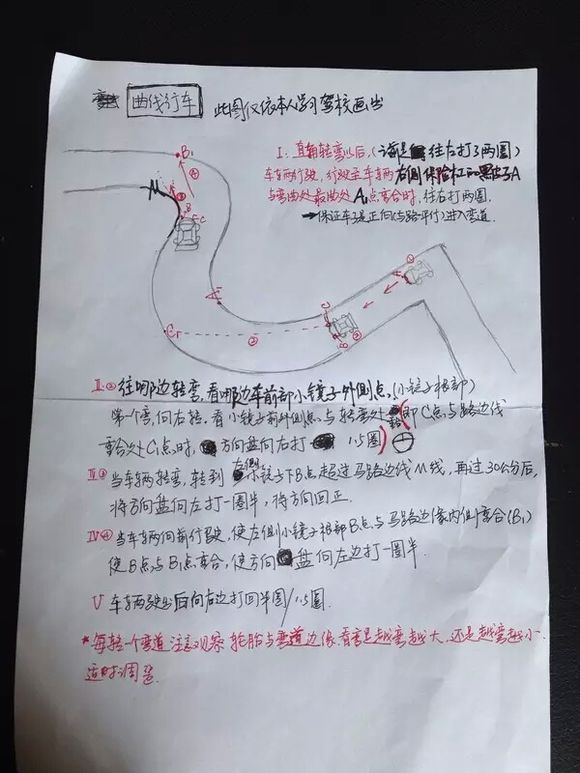 曲线行车 此图仅依本人学习驾校画出
I. 直角转弯以后,(该是往左打了两圈)
车车两行驶,行驶至车车两右侧保险杠的黑点子A
与弯曲处最曲处A₁点重合时,往右打两圈.
保证车子是正向(与路平行)进入弯道.
B₁
④
③
M
B
C
A₁
C₁
②
C
B
①
A
II.② 往哪边转弯,看哪边车前部小镜子外侧点,(小镜子根部)
第一个弯,向右转,看小镜子前外侧点,与转弯处(即C点与路边线
重合处C₁点时,方向盘向右打 1.5圈)
III③ 当车辆转弯,转到左侧小镜子下B点超过马路边线M线,再过30公分后,
将方向盘向左打一圈半,将方向回正.
IV④ 当车辆向前行驶,使左侧小镜子根部B点与马路边缘内侧重合(B₁)
使B点与B₁点重合,使方向盘向左边打一圈半.
V 车辆驶出后向右边打回半圈/1.5圈.
*每转一个弯道注意观察轮胎与弯道边缘.看看是越弯越大,还是越弯越小.
适时调整